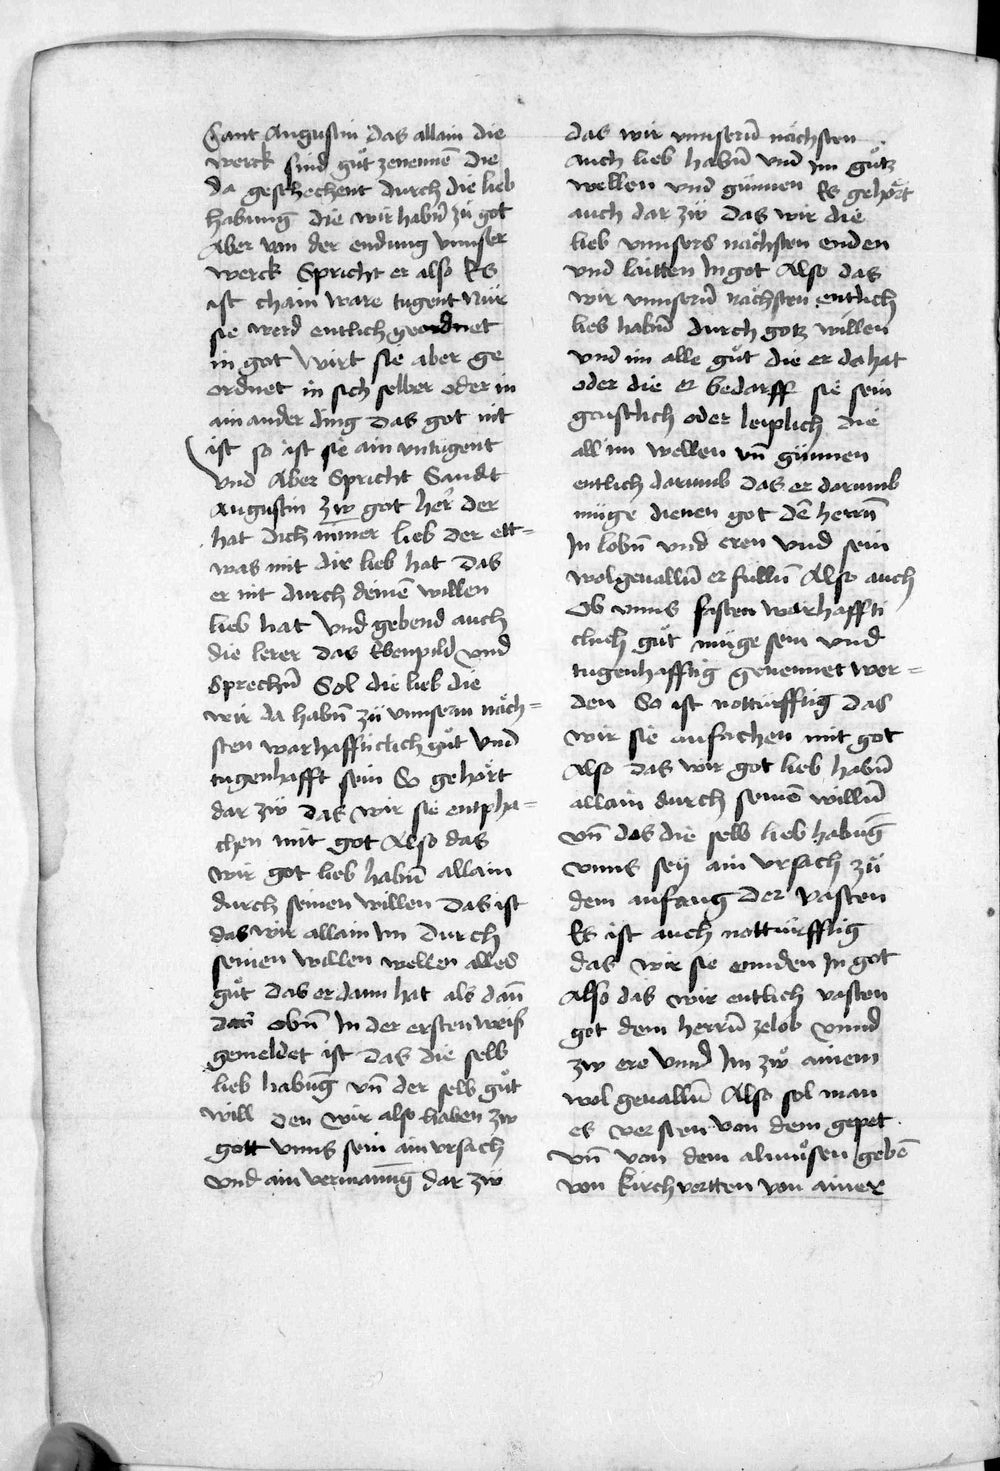 Sant Augustin das allain die
werck sind gůt zenennē die
da geschechent durch die lieb
habung die wir habn̄ zů got
Aber von der endung vnnser
werck Spricht er also Es
ist chain ware tugent Nür
sie werd entlich geordnet
in got Wirt sie aber ge
ordnet in sich selber oder in
ain ander ding das got nit
ist so ist sie ain vntugent
Vnd Aber Spricht Sandt
Augustin zw got her̄ der
hat dich mīner lieb der ett=
was mit dir lieb hat das
er nit durch deinē willen
lieb hat Vnd gebend auch
die lerer das Ebenpild vnd
Sprechn̄ Sol die lieb die
wir da habn̄ zů vnnserm näch=
sten warhaffticlich gůt Vnd
tugenhafft sein So gehört
dar zẘ das wir sie entpha=
chen mit got Also das
wir got lieb habn̄ allain
durch seinen willen das ist
das wir allain Im durch
seinen willen wellen alles
gůt das er dann hat als dan̄
das obn̄ In der ersten weis
gemeldet ist das die selb
lieb habūg vn̄ der selb gůt
will den wir also haben zw
gott vnns sein ain vrsach
vnd ain vermanūg dar zẘ
das wir vnnsern̄ nächsten
auch lieb habn̄ vnd im gůtz
wellen vnd günnen Es gehört
auch dar zẘ das wir die
lieb vnnsers nächsten enden
vnd laitten In got Also das
wir vnnsern̄ nächsten entlich
lieb habn̄ durch gotz willen
vnd im alle gůt die er da hat
oder die er bedarff sie sein
geistlich oder leiplich die
all im wellen vn̄ günnen
entlich darumb das er darumb
müge dienen got dē herrn̄
In lobn̄ vnd eren vnd sein
wolgeualln̄ er fulln̄ Also auch
Ob vnns fasten warhaffti
clich gůt müge sein vnd
tugenhafftig genennet wer=
den So ist notturfftig das
wir sie anfachen mit got
Also das wir got lieb habn̄
allain durch seinē willn̄
vn̄ das die selb lieb habūg
vnns seÿ ain vrsach zů
dem anfang der vasten
Es ist auch notturfftig
das wir sie ennden In got
Also das wir entlich vasten
got dem herrn̄ zelob vnnd
zw ere Vnnd Im zẘ ainem
wol geualln̄ Also sol man
es versten von dem gepet
vn̄ von dem almůsen gebē
von kirchvertten von ainer